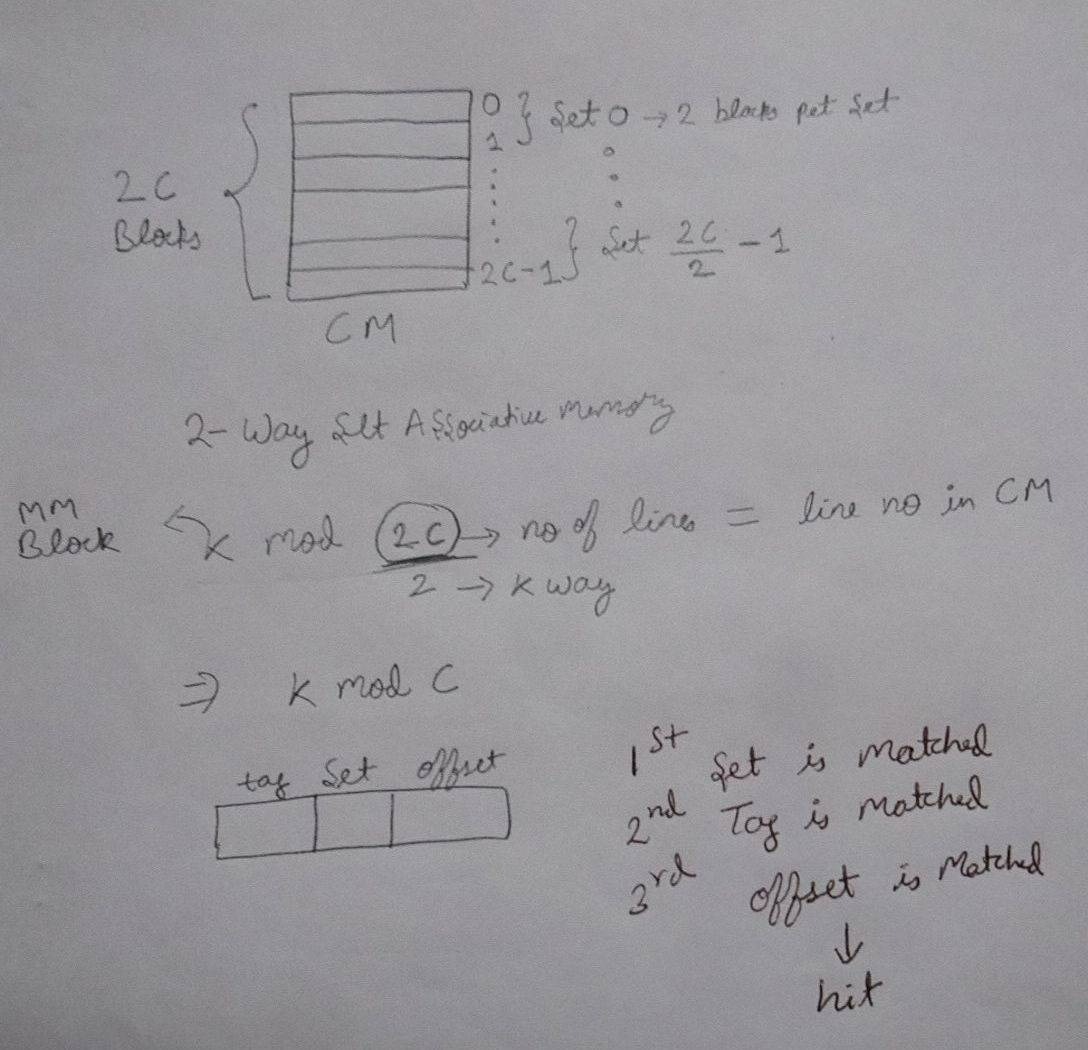 0 } Set 0 → 2 blocks pet set
1
2C
Blocks
2C-1 } Set 2C/2 - 1
CM
2-Way Set Associative memory
MM
Block
k mod 2C → no of lines = line no in CM
2 → K way
⇒ K mod C
tag Set offset
1st Set is Matched
2nd Tag is Matched
3rd offset is Matched
↓
hit